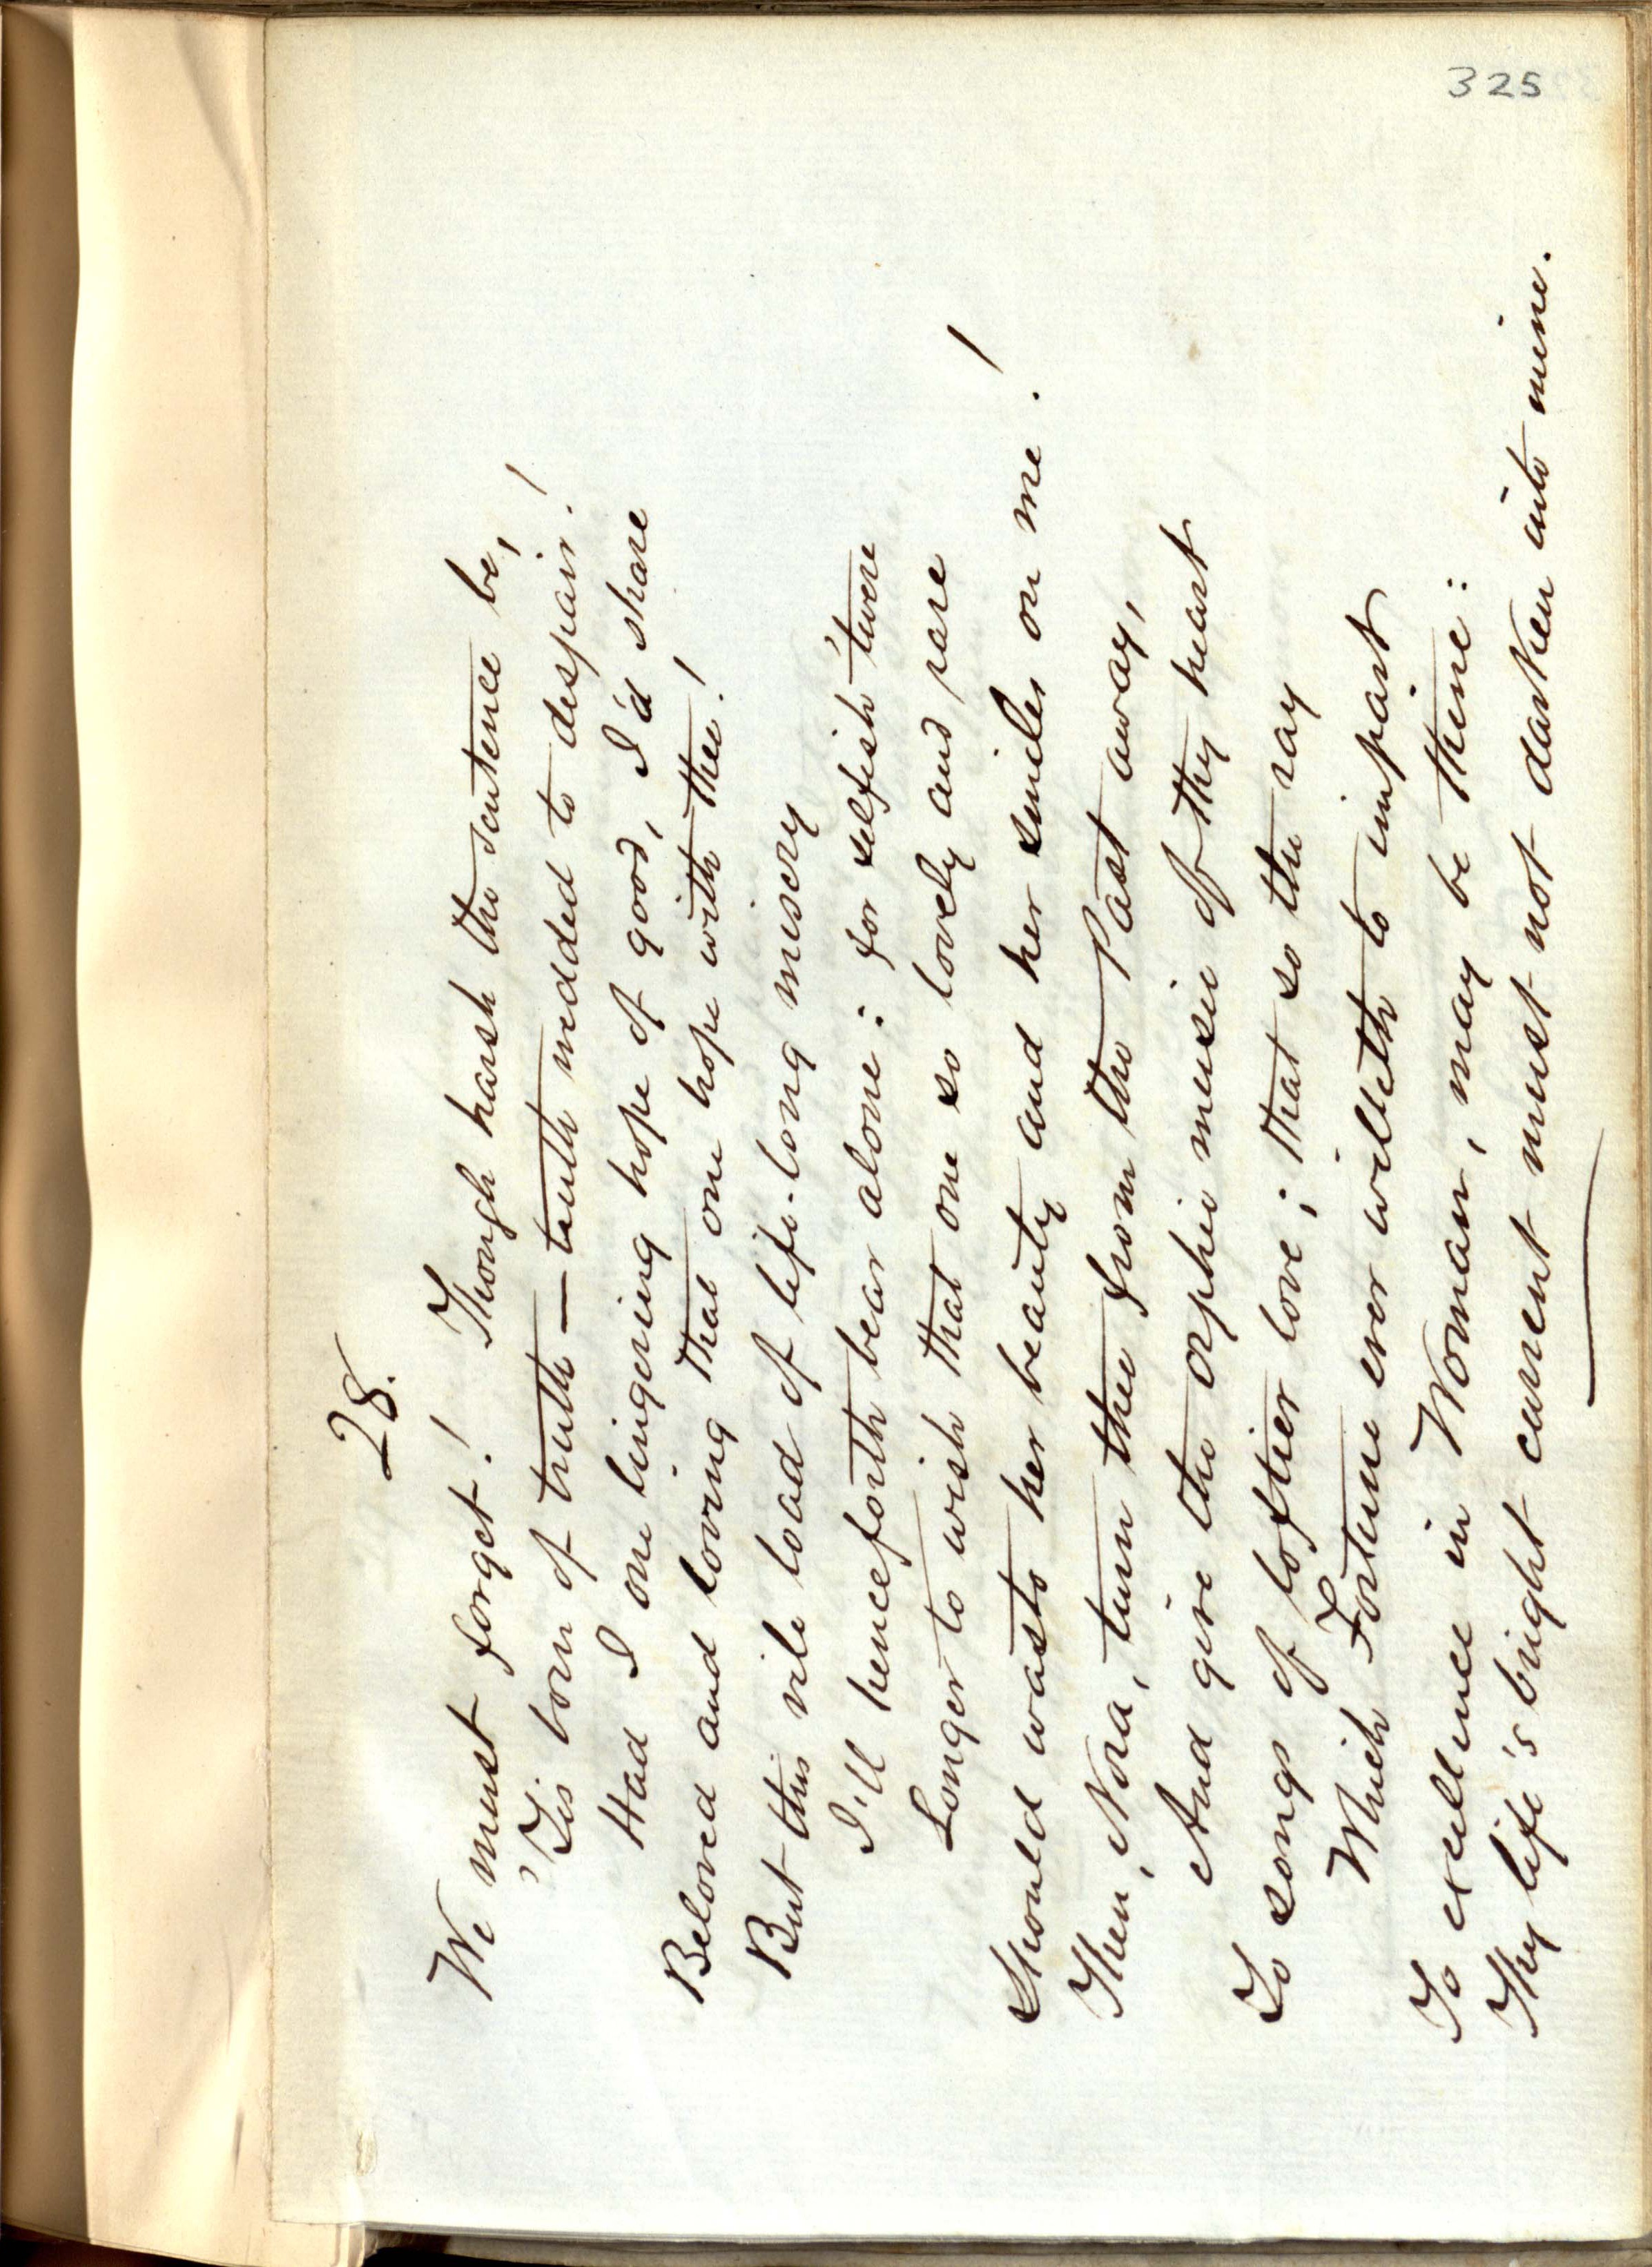 325
28.
We must forget! Though harsh the sentence be,
'Tis born of truth — truth wedded to despair!
Had I one lingering hope of good, I'd share
Beloved and loving that one hope with thee!
But this vile load of life-long misery
I'll henceforth bear alone: for selfish 'twere
Longer to wish that one so lovely and rare
Should waste her beauty and her smiles on me!
Then, Nora, turn thee from the Past away,
And give the orphic music of thy heart
To songs of loftier love; that so the ray
Which Fortune ever willeth to impart
To excellence in Woman, may be thine:
Thy life's bright current must not darken into mine.